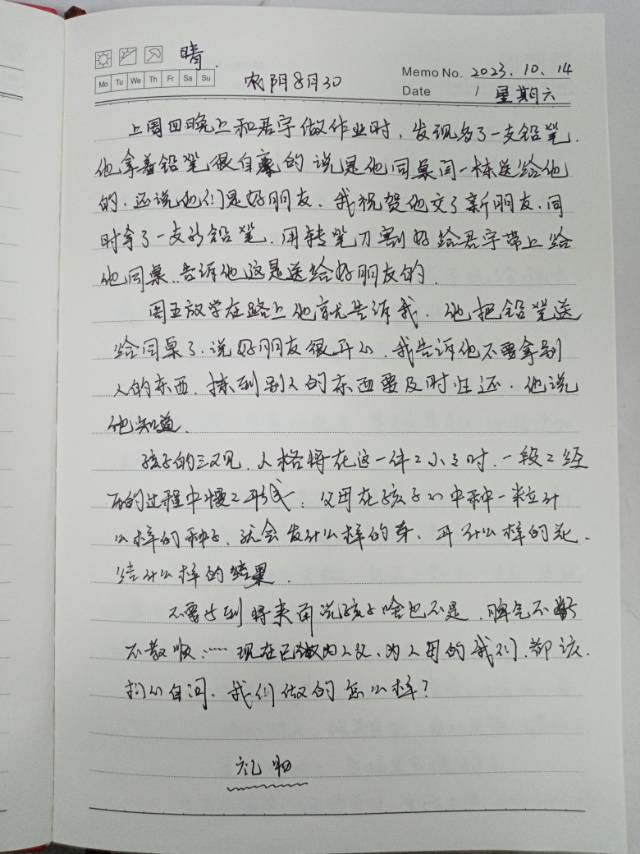 晴.
Mo Tu We Th Fr Sa Su
Memo No. 2023.10.14
农阴8月30
Date / 星期六
上周四晚上和君宇做作业时,发现多了一支铅笔.
他拿着铅笔很自豪的说是他同桌同一栋送给他
的.还说他们是好朋友.我祝贺他交了新朋友.同
时拿了一支新铅笔.用转笔刀割好给君宇带上给
他同桌.告诉他这是送给好朋友的.
周五放学在路上他就告诉我.他把铅笔送
给同桌了.说好朋友很开心.我告诉他不要拿别
人的东西.捡到别人的东西要及时归还.他说
他知道.
孩子的三观.人格将在这一件こ小こ时.一段こ经
历的过程中慢こ形成.父母在孩子心中种一粒什
么样的种子.就会发什么样的芽.开什么样的花.
结什么样的结果.
不要等到将来再说孩子啥也不是.脾气不好
不敬顺……现在已做为人父.为人母的我们.都该.
扪心自问.我们做的怎么样?
礼物